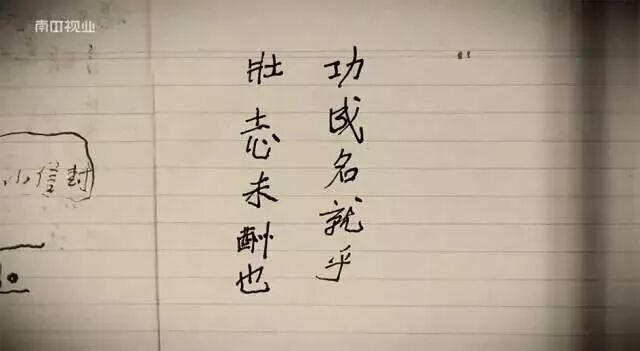 南田视业
功成名就乎
壯志未酬也
小信封